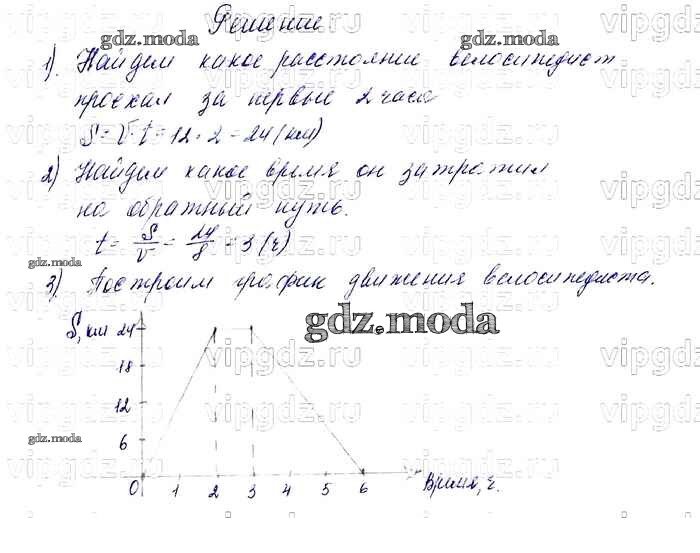 Решение
gdz.moda
1). Найдем какое расстояние велосипедист
проехал за первые 2 часа
S = V · t = 12 · 2 = 24 (км)
2) Найдем какое время он затратил
на обратный путь.
t = S/V = 24/8 = 3 (ч)
gdz.moda
3). Построим график движения велосипедиста.
gdz.moda
S, км 24
18
12
6
gdz.moda
0 1 2 3 4 5 6 Время, ч.
vipgdz.ru